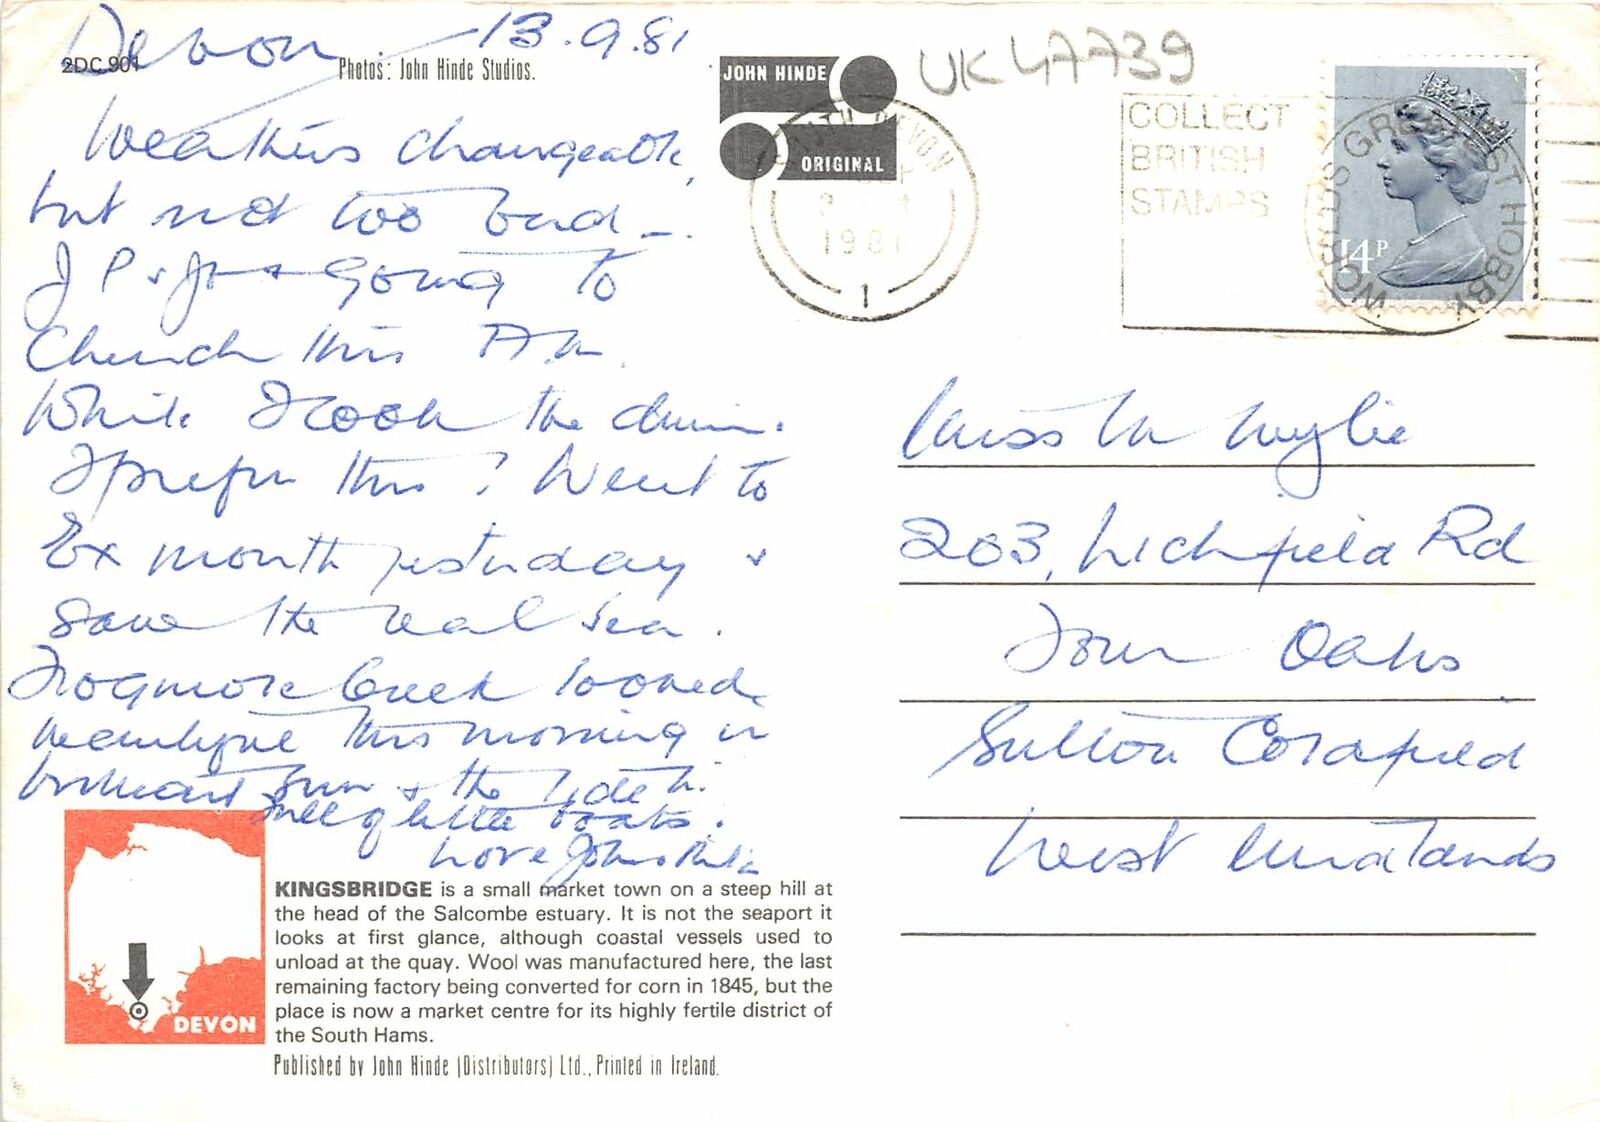 Devon. 13.9.81
2DC 901
Photos: John Hinde Studios.
Weather's changeable,
but not too bad —.
J P & Jo + going to
Church this A.M.
While I cook the dinner.
I prefer this! Went to
Exmouth yesterday &
saw the real sea.
Frogmore Creek looked
beautiful this morning in
brilliant sun & the tide in.
full of little boats.
Love John &
KINGSBRIDGE is a small market town on a steep hill at
the head of the Salcombe estuary. It is not the seaport it
looks at first glance, although coastal vessels used to
unload at the quay. Wool was manufactured here, the last
remaining factory being converted for corn in 1845, but the
place is now a market centre for its highly fertile district of
the South Hams.
Published by John Hinde (Distributors) Ltd., Printed in Ireland.
DEVON
JOHN HINDE
ORIGINAL
UK47739
DEVON
SEP
1981
1
COLLECT
BRITISH
STAMPS
WORLD'S GREATEST HOBBY
14P
Miss M Wylie
203, Lichfield Rd
Four Oaks
Sutton Coldfield
West Midlands